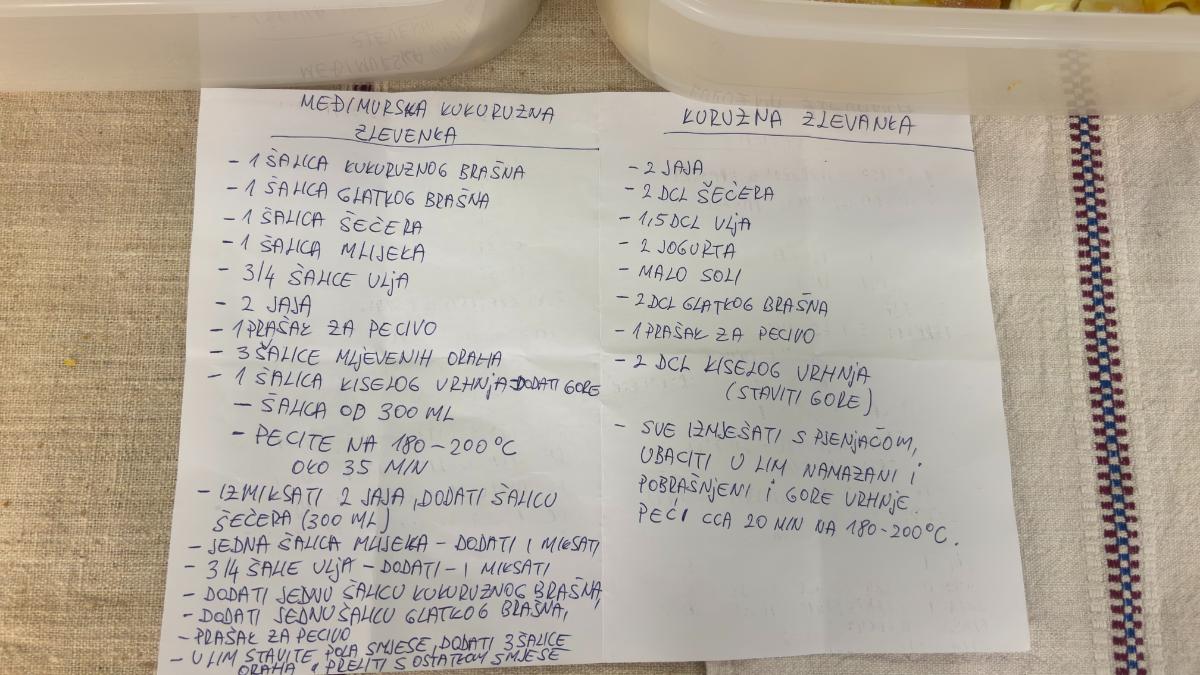 MEĐIMURSKA KUKURUZNA
ZLEVENKA
- 1 ŠALICA KUKURUZNOG BRAŠNA
- 1 ŠALICA GLATKOG BRAŠNA
- 1 ŠALICA ŠEĆERA
- 1 ŠALICA MLIJEKA
- 3/4 ŠALICE ULJA
- 2 JAJA
- 1 PRAŠAK ZA PECIVO
- 3 ŠALICE MLJEVENIH ORAHA
- 1 ŠALICA KISELOG VRHNJA - DODATI GORE
- ŠALICA OD 300 ML
- PECITE NA 180-200°C
OKO 35 MIN
- IZMIKSATI 2 JAJA, DODATI ŠALICU
ŠEĆERA (300 ML)
- JEDNA ŠALICA MLIJEKA - DODATI I MIKSATI
- 3/4 ŠALIE ULJA - DODATI - I MIKSATI
- DODATI JEDNU ŠALICU KUKURUZNOG BRAŠNA,
- DODATI JEDNU ŠALICU GLATKOG BRAŠNA,
- PRAŠAK ZA PECIVO
- U LIM STAVITE POLA SMJESE, DODATI 3 ŠALICE
ORAHA I PRELITI S OSTATKOM SMJESE
KURUZNA ZLEVANKA
- 2 JAJA
- 2 DCL ŠEĆERA
- 1,5 DCL ULJA
- 2 JOGURTA
- MALO SOLI
- 2 DCL GLATKOG BRAŠNA
- 1 PRAŠAK ZA PECIVO
- 2 DCL KISELOG VRHNJA
(STAVITI GORE)
- SVE IZMJEŠATI S PJENJAČOM,
UBACITI U LIM NAMAZANI I
POBRAŠNJENI I GORE VRHNJE.
PEĆI CCA 20 MIN NA 180-200°C.